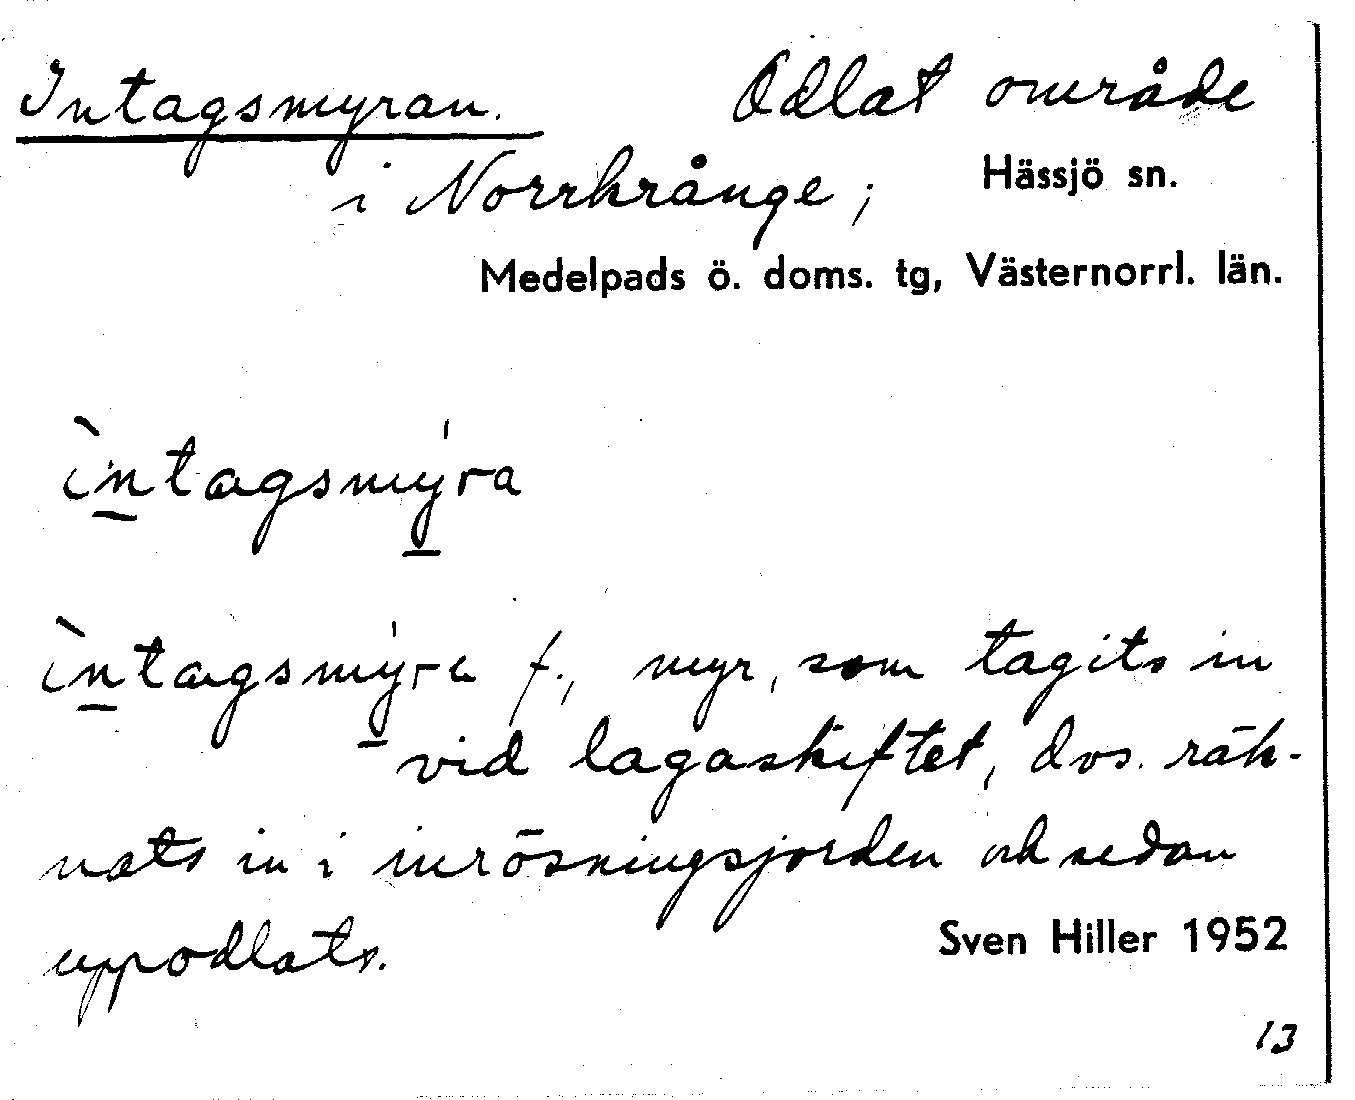 Intagsmyran. Odlat område
i Norrkrånge; Hässjö sn.
Medelpads ö. doms. tg, Västernorrl. län.
ìntagsmy̍ra
ìntagsmy̍ra f., myr, som tagits in
vid lagaskiftet, dvs. räk-
nats in i inrösningsjorden och sedan
uppodlats.
Sven Hiller 1952
13